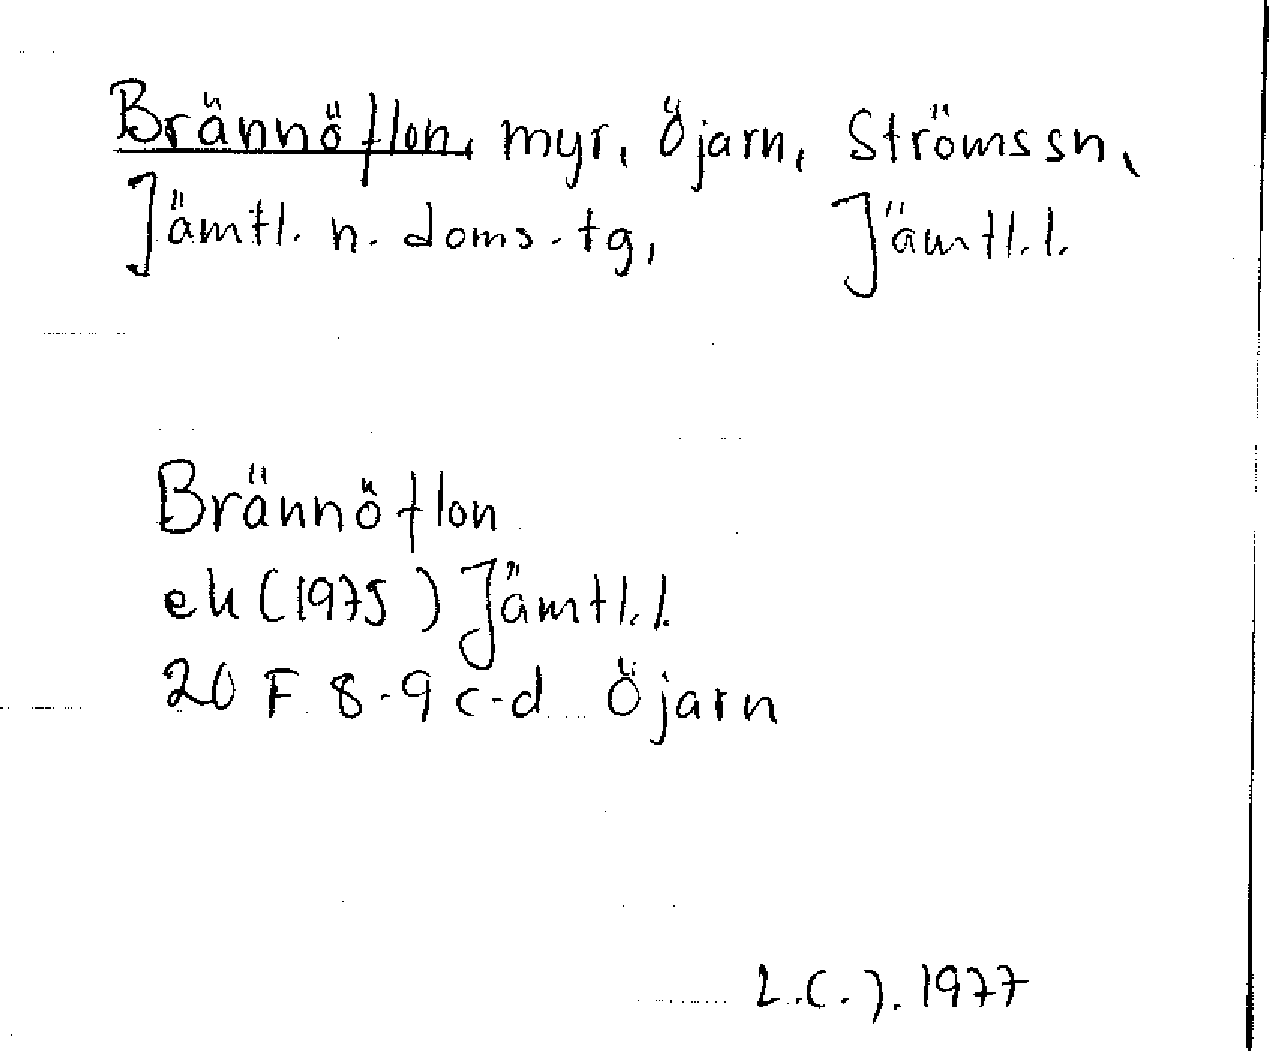 Brännöflon, myr, Öjarn, Strömssn,
Jämtl. n. doms.tg, Jämtl.l.
Brännöflon
ek (1975) Jämtl.l.
20 F 8-9 c-d Öjarn
L.C.J. 1977